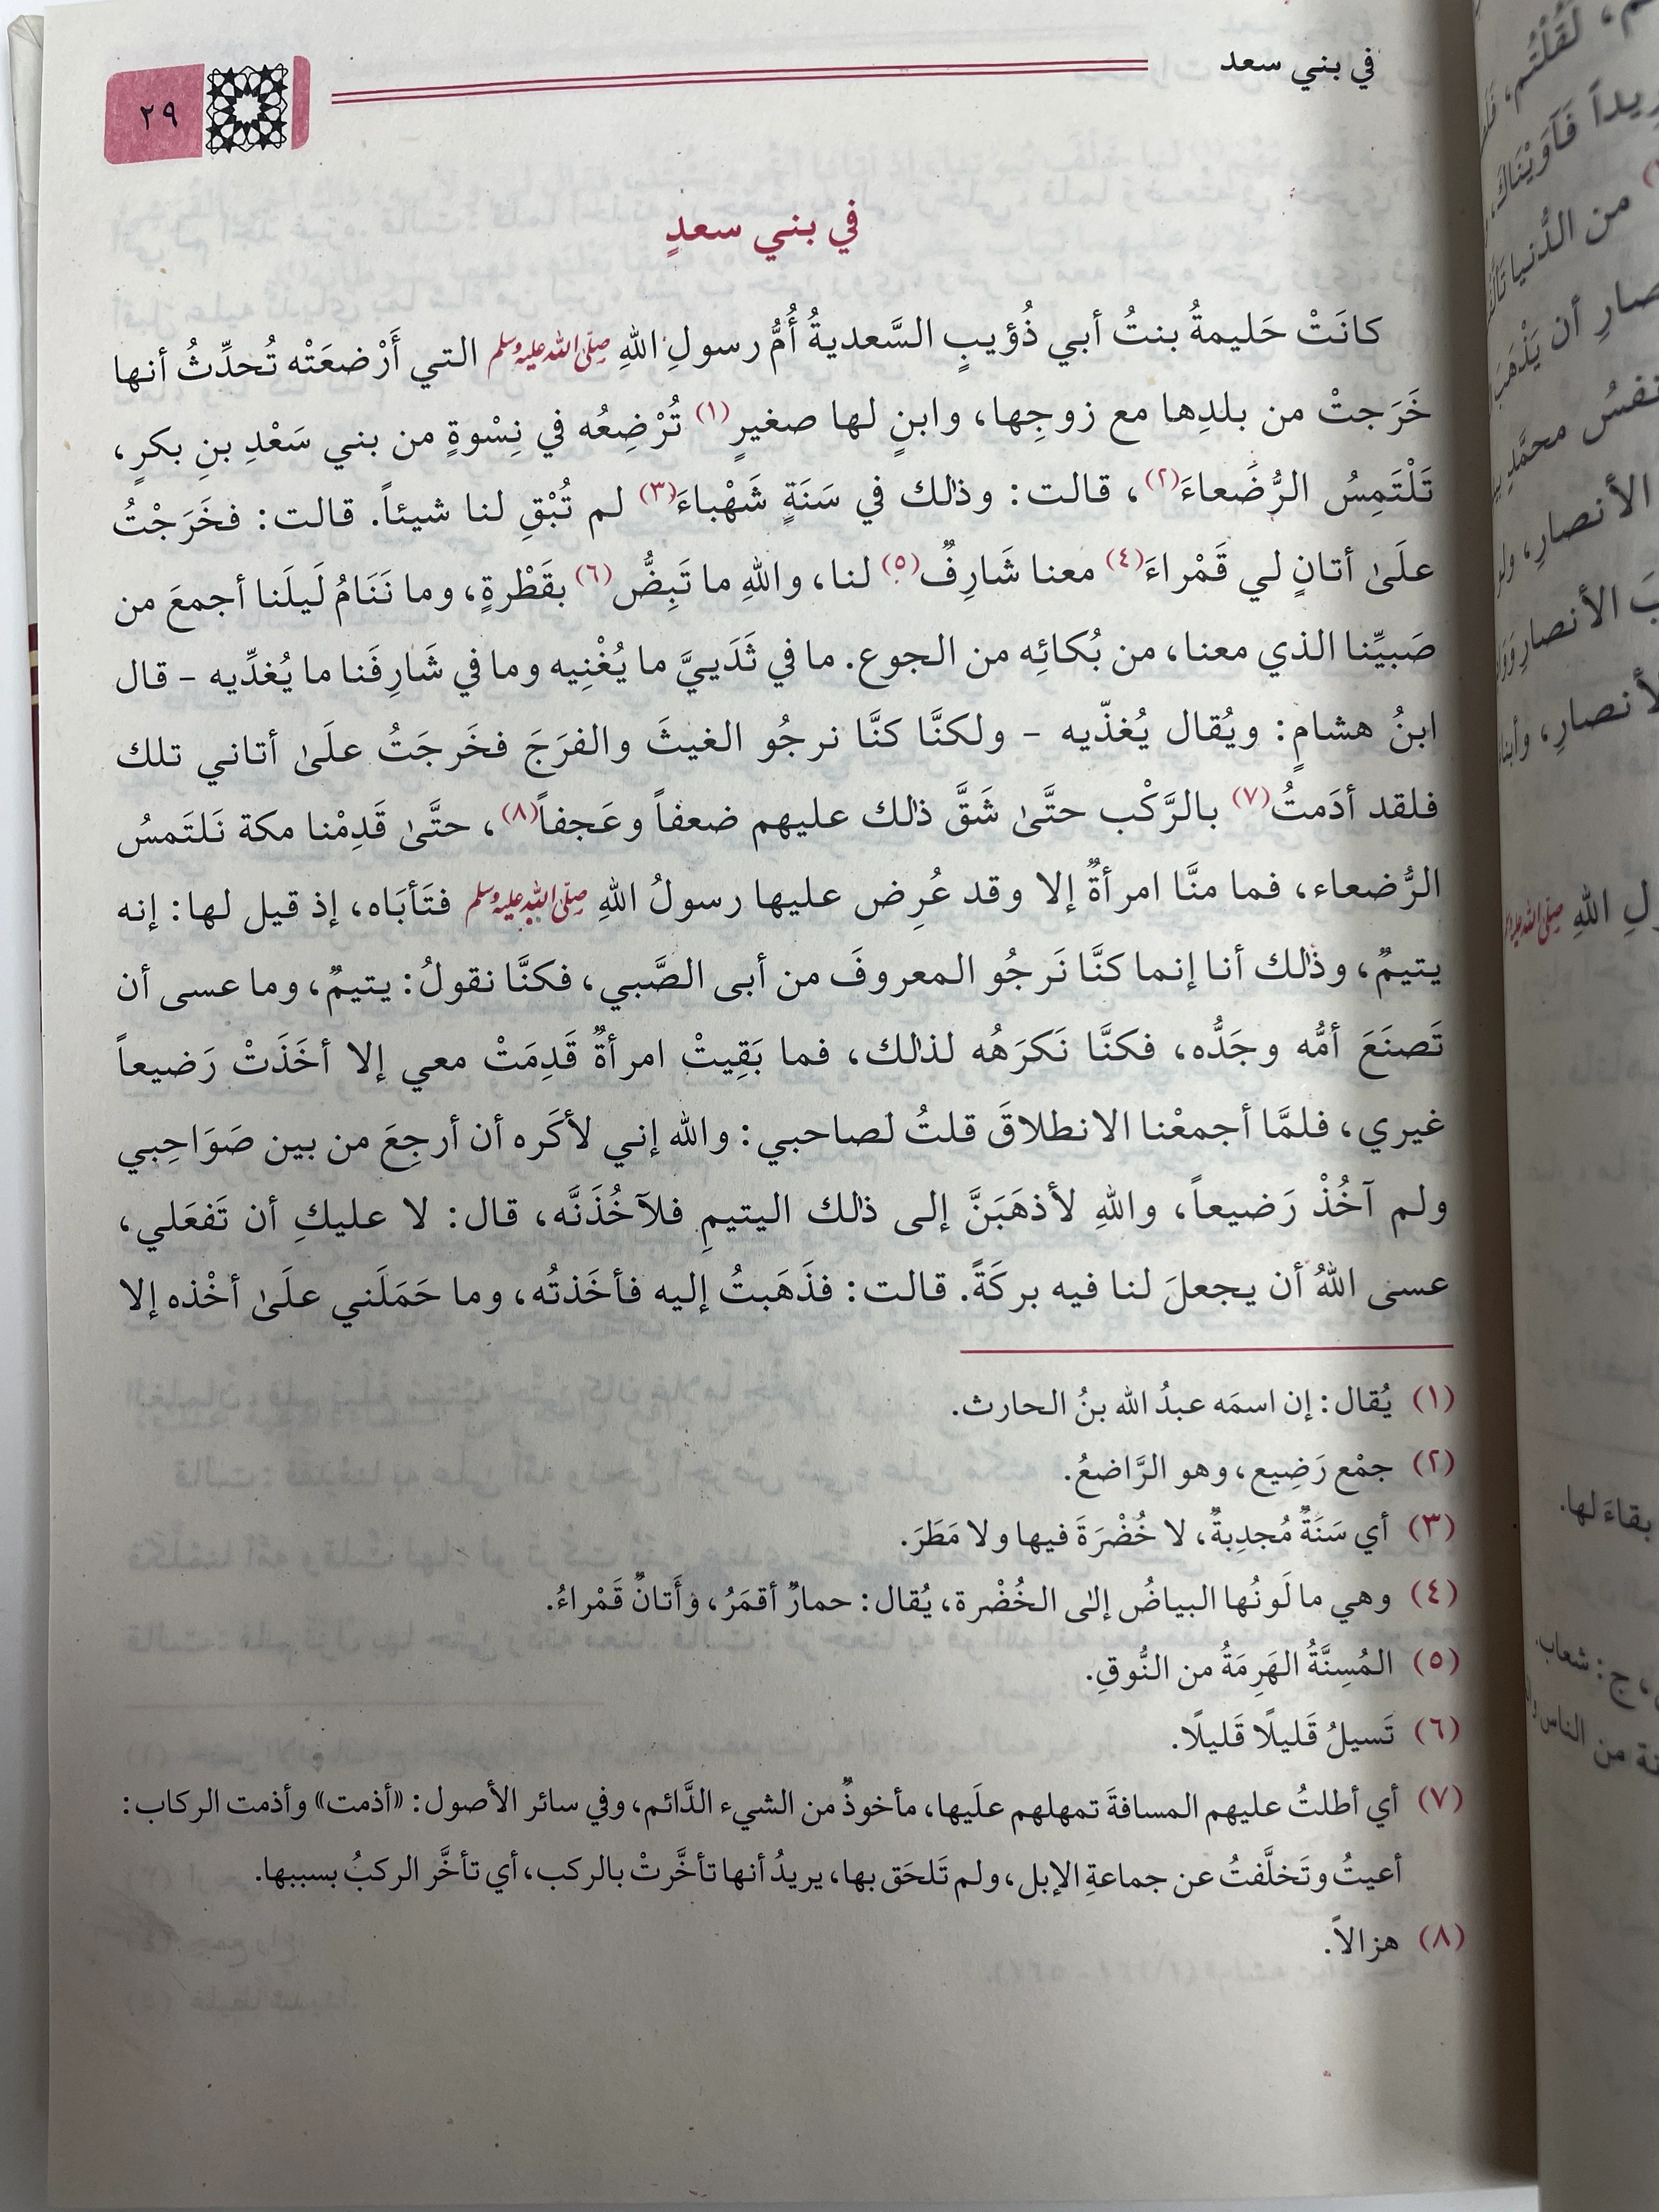 في بني سعد
٢٩
في بني سعدٍ
كانَتْ حَليمةُ بنتُ أبي ذُؤيبٍ السَّعديةُ أُمُّ رسولِ اللهِ صلى الله عليه وسلم التي أَرْضعَتْه تُحدِّثُ أنها
خَرَجتْ من بلدِها مع زوجِها، وابنٍ لها صغيرٍ(١) تُرْضِعُه في نِسْوةٍ من بني سَعْدِ بنِ بكرٍ،
تَلْتَمِسُ الرُّضَعاءَ(٢)، قالت: وذٰلك في سَنَةٍ شَهْباءَ(٣) لم تُبْقِ لنا شيئاً. قالت: فخَرَجْتُ
علَىٰ أتانٍ لي قَمْراءَ(٤) معنا شَارِفٌ(٥) لنا، واللهِ ما تَبِضُّ(٦) بقَطْرةٍ، وما نَنَامُ لَيلَنا أجمعَ من
صَبيِّنا الذي معنا، من بُكائِه من الجوع. ما في ثَدَييَّ ما يُغْنِيه وما في شَارِفَنا ما يُغدِّيه - قال
ابنُ هشامٍ: ويُقال يُغذّيه - ولكنَّا كنَّا نرجُو الغيثَ والفرَجَ فخَرجَتُ علَىٰ أتاني تلك
فلقد أدَمتُ(٧) بالرَّكْب حتَّىٰ شَقَّ ذٰلك عليهم ضعفاً وعَجفاً(٨)، حتَّىٰ قَدِمْنا مكة نَلتَمسُ
الرُّضعاء، فما منَّا امرأةٌ إلا وقد عُرِض عليها رسولُ اللهِ صلى الله عليه وسلم فتَأبَاه، إذ قيل لها: إنه
يتيمٌ، وذٰلك أنا إنما كنَّا نَرجُو المعروفَ من أبى الصَّبي، فكنَّا نقولُ: يتيمٌ، وما عسى أن
تَصنَعَ أمُّه وجَدُّه، فكنَّا نَكرَهُه لذٰلك، فما بَقِيتْ امرأةٌ قَدِمَتْ معي إلا أخَذَتْ رَضيعاً
غيري، فلمَّا أجمعْنا الانطلاقَ قلتُ لصاحبي: والله إني لأكَره أن أرجِعَ من بين صَوَاحِبي
ولم آخُذْ رَضيعاً، واللهِ لأذهَبَنَّ إلى ذٰلك اليتيمِ فلآخُذَنَّه، قال: لا عليكِ أن تَفعَلي،
عسى اللهُ أن يجعلَ لنا فيه بركَةً. قالت: فذَهَبتُ إليه فأخَذتُه، وما حَمَلَني علَىٰ أخْذه إلا
(١) يُقال: إن اسمَه عبدُ الله بنُ الحارث.
(٢) جمْع رَضِيع، وهو الرَّاضعُ.
(٣) أي سَنَةٌ مُجدِبةٌ، لا خُضْرَةَ فيها ولا مَطَرَ.
(٤) وهي ما لَونُها البياضُ إلى الخُضْرة، يُقال: حمارٌ أقمَرُ، وأَتانٌ قَمْراءُ.
(٥) المُسِنَّةُ الهَرِمَةُ من النُّوقِ.
(٦) تَسيلُ قَليلًا قَليلًا.
(٧) أي أطلتُ عليهم المسافةَ تمهلهم علَيها، مأخوذٌ من الشيء الدَّائم، وفي سائر الأصول: «أذمت» وأذمت الركاب:
أعيتُ وتَخلَّفتُ عن جماعةِ الإبل، ولم تَلحَق بها، يريدُ أنها تأخَّرتْ بالركب، أي تأخَّر الركبُ بسببها.
(٨) هزالاً.